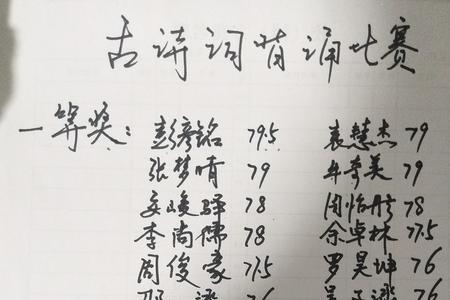 古诗词背诵比赛
一等奖：彭彦铭 79.5 袁慧杰 79
张梦晴 79 牟奇美 79
姜峻驿 78 周怡彤 78
李尚儒 78 余卓林 77.5
周俊豪 77.5 罗昊坤 76
76